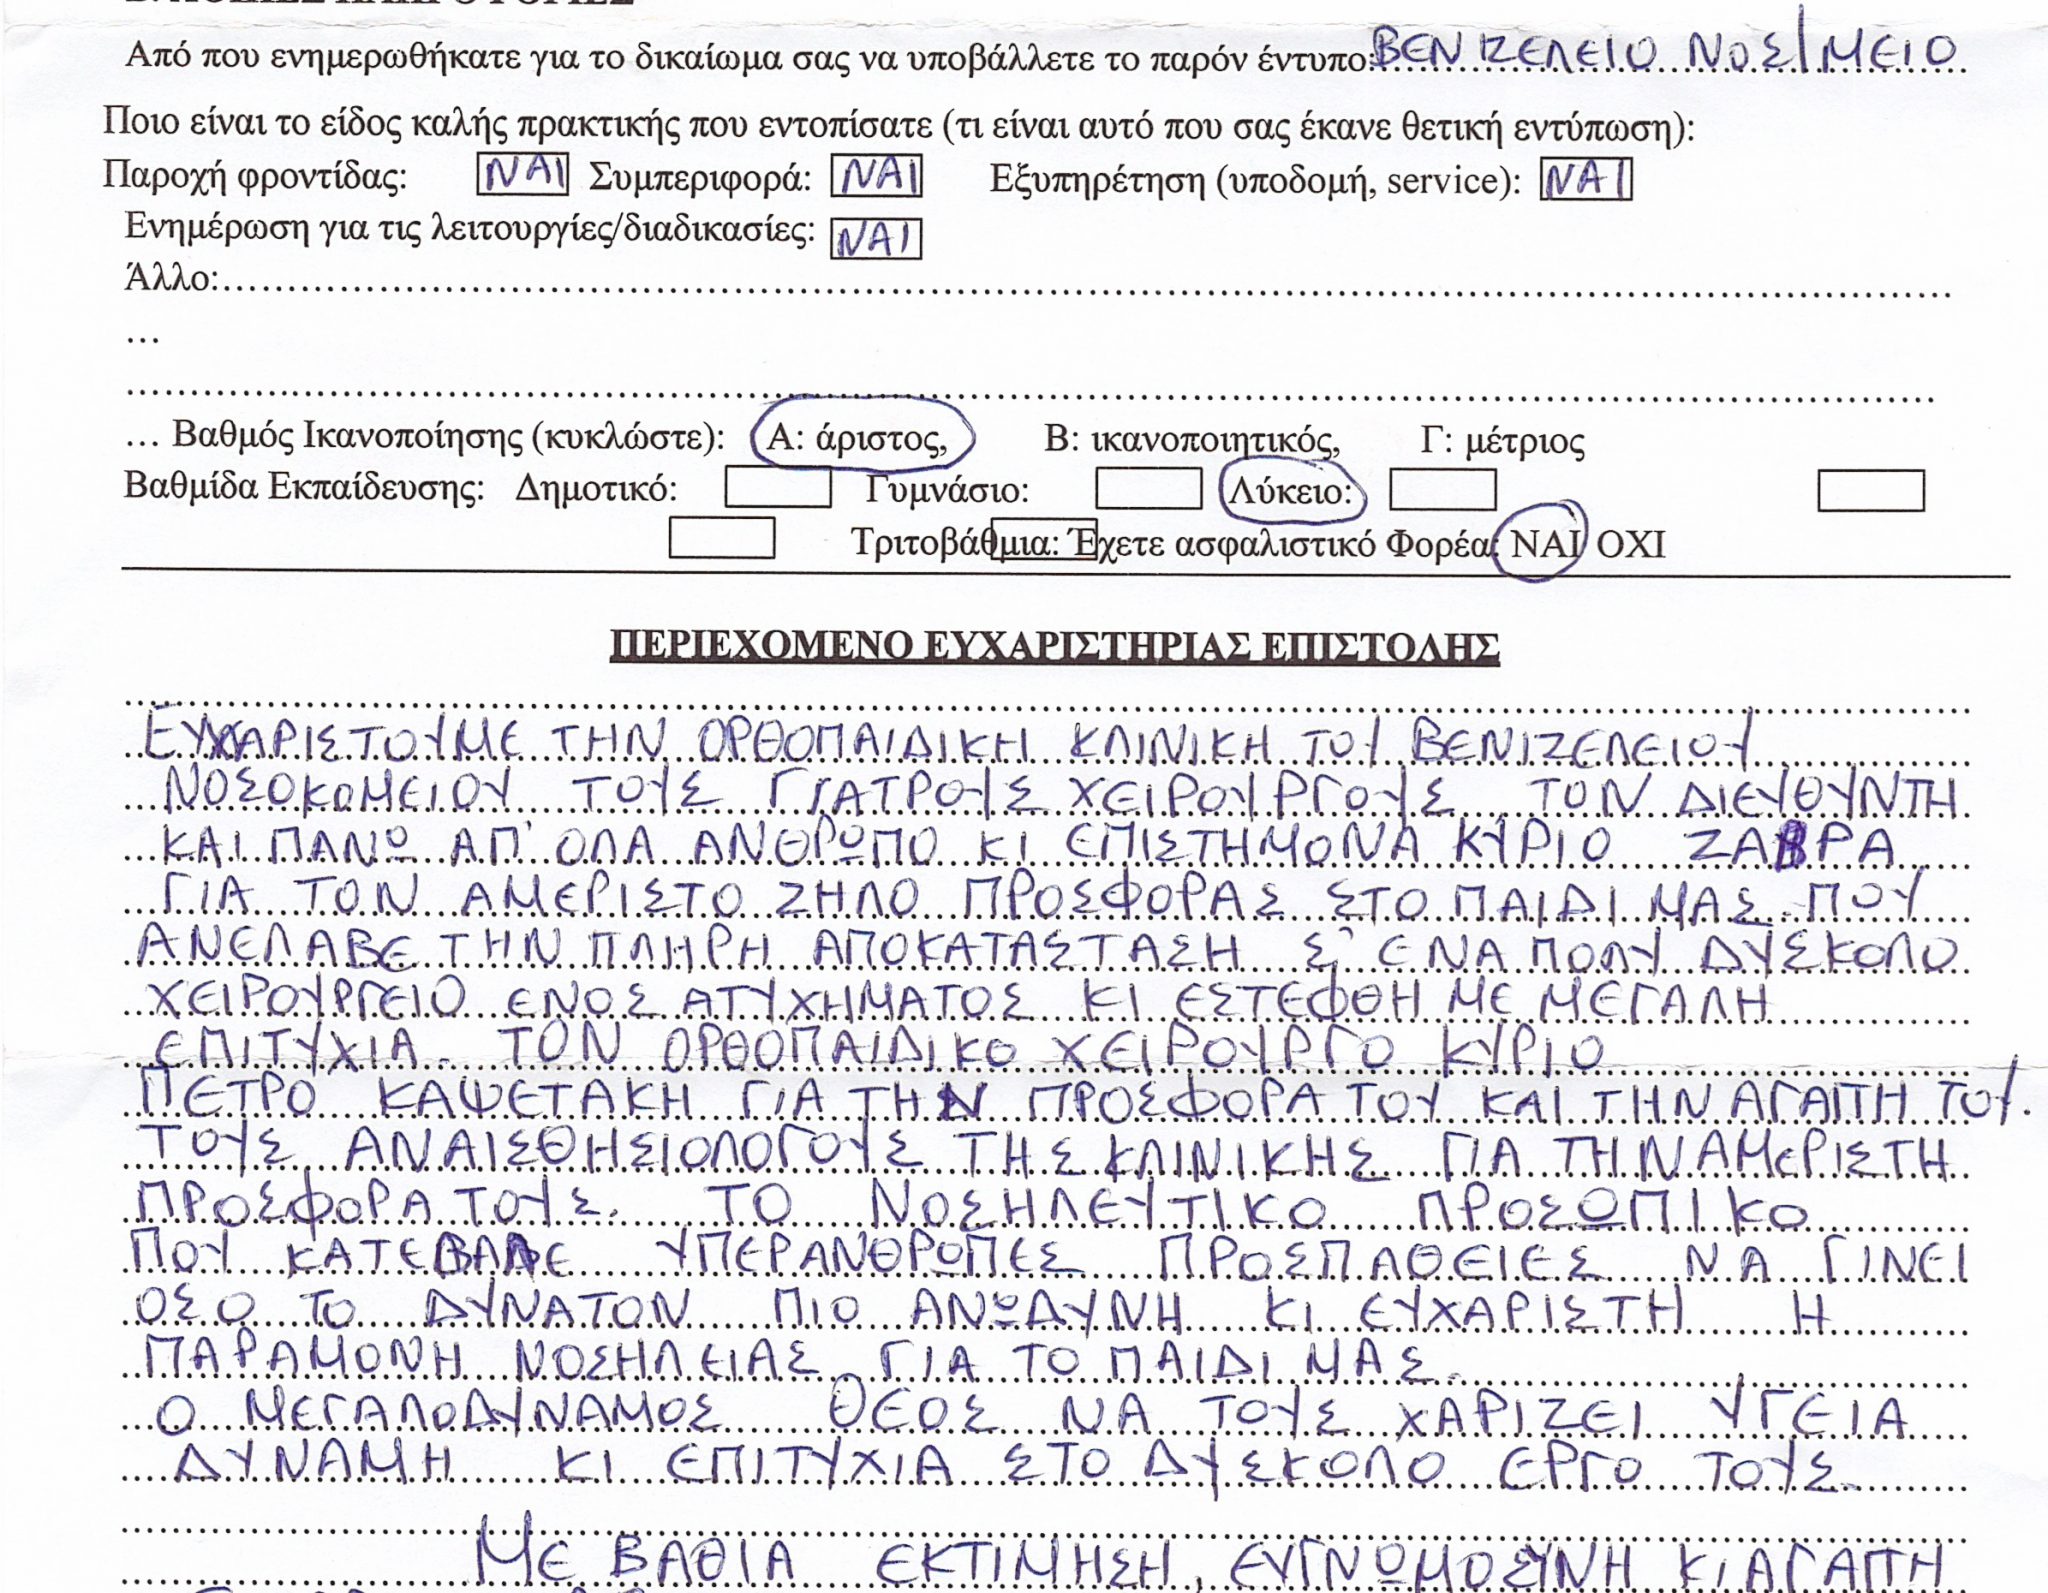 Από που ενημερωθήκατε για το δικαίωμα σας να υποβάλλετε το παρόν έντυπο: ΒΕΝΙΖΕΛΕΙΟ ΝΟΣ/ΜΕΙΟ
Ποιο είναι το είδος καλής πρακτικής που εντοπίσατε (τι είναι αυτό που σας έκανε θετική εντύπωση):
Παροχή φροντίδας: ΝΑΙ Συμπεριφορά: ΝΑΙ Εξυπηρέτηση (υποδομή, service): ΝΑΙ
Ενημέρωση για τις λειτουργίες/διαδικασίες: ΝΑΙ
Άλλο:..........................................................................................................
...
..........................................................................................................
... Βαθμός Ικανοποίησης (κυκλώστε): Α: άριστος, Β: ικανοποιητικός, Γ: μέτριος
Βαθμίδα Εκπαίδευσης: Δημοτικό: Γυμνάσιο: Λύκειο:
Τριτοβάθμια: Έχετε ασφαλιστικό Φορέα: ΝΑΙ ΟΧΙ
ΠΕΡΙΕΧΟΜΕΝΟ ΕΥΧΑΡΙΣΤΗΡΙΑΣ ΕΠΙΣΤΟΛΗΣ
ΕΥΧΑΡΙΣΤΟΥΜΕ ΤΗΝ ΟΡΘΟΠΑΙΔΙΚΗ ΚΛΙΝΙΚΗ ΤΟΥ ΒΕΝΙΖΕΛΕΙΟΥ
ΝΟΣΟΚΟΜΕΙΟΥ ΤΟΥΣ ΓΙΑΤΡΟΥΣ ΧΕΙΡΟΥΡΓΟΥΣ ΤΟΝ ΔΙΕΥΘΥΝΤΗ
ΚΑΙ ΠΑΝΩ ΑΠ' ΟΛΑ ΑΝΘΡΩΠΟ ΚΙ ΕΠΙΣΤΗΜΟΝΑ ΚΥΡΙΟ ΖΑΒΡΑ
ΓΙΑ ΤΟΝ ΑΜΕΡΙΣΤΟ ΖΗΛΟ ΠΡΟΣΦΟΡΑΣ ΣΤΟ ΠΑΙΔΙ ΜΑΣ ΠΟΥ
ΑΝΕΛΑΒΕ ΤΗΝ ΠΛΗΡΗ ΑΠΟΚΑΤΑΣΤΑΣΗ Σ' ΕΝΑ ΠΟΛΥ ΔΥΣΚΟΛΟ
ΧΕΙΡΟΥΡΓΕΙΟ ΕΝΟΣ ΑΤΥΧΗΜΑΤΟΣ ΚΙ ΕΣΤΕΦΘΗ ΜΕ ΜΕΓΑΛΗ
ΕΠΙΤΥΧΙΑ. ΤΟΝ ΟΡΘΟΠΑΙΔΙΚΟ ΧΕΙΡΟΥΡΓΟ ΚΥΡΙΟ
ΠΕΤΡΟ ΚΑΨΕΤΑΚΗ ΓΙΑ ΤΗΝ ΠΡΟΣΦΟΡΑ ΤΟΥ ΚΑΙ ΤΗΝ ΑΓΑΠΗ ΤΟΥ.
ΤΟΥΣ ΑΝΑΙΣΘΗΣΙΟΛΟΓΟΥΣ ΤΗΣ ΚΛΙΝΙΚΗΣ ΓΙΑ ΤΗΝ ΑΜΕΡΙΣΤΗ
ΠΡΟΣΦΟΡΑ ΤΟΥΣ. ΤΟ ΝΟΣΗΛΕΥΤΙΚΟ ΠΡΟΣΩΠΙΚΟ
ΠΟΥ ΚΑΤΕΒΑΛΕ ΥΠΕΡΑΝΘΡΩΠΕΣ ΠΡΟΣΠΑΘΕΙΕΣ ΝΑ ΓΙΝΕΙ
ΟΣΟ ΤΟ ΔΥΝΑΤΟΝ ΠΙΟ ΑΝΩΔΥΝΗ ΚΙ ΕΥΧΑΡΙΣΤΗ Η
ΠΑΡΑΜΟΝΗ ΝΟΣΗΛΕΙΑΣ ΓΙΑ ΤΟ ΠΑΙΔΙ ΜΑΣ.
Ο ΜΕΓΑΛΟΔΥΝΑΜΟΣ ΘΕΟΣ ΝΑ ΤΟΥΣ ΧΑΡΙΖΕΙ ΥΓΕΙΑ
ΔΥΝΑΜΗ ΚΙ ΕΠΙΤΥΧΙΑ ΣΤΟ ΔΥΣΚΟΛΟ ΕΡΓΟ ΤΟΥΣ.
ΜΕ ΒΑΘΙΑ ΕΚΤΙΜΗΣΗ, ΕΥΓΝΩΜΟΣΥΝΗ ΚΙ ΑΓΑΠΗ